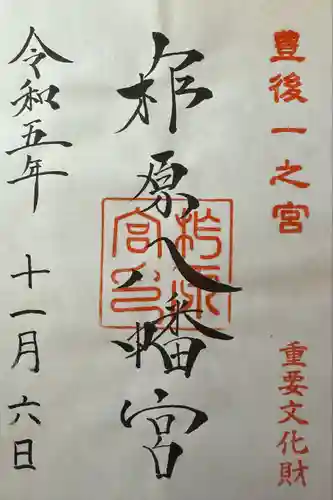 豊後一之宮
重要文化財
柞原八幡宮
柞原宮印
令和五年
十一月六日